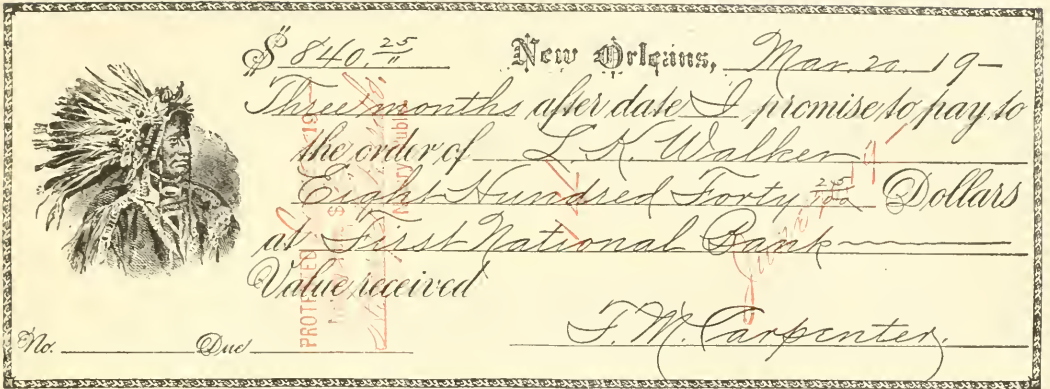 $ 840.25/" New Orleans, Mar. 20. 19-
Three months after date I promise to pay to
the order of L. K. Walker
Eight Hundred Forty 25/100 Dollars
at First National Bank
Value received
No. Due
T. M. Carpenter.
PROTESTED 19